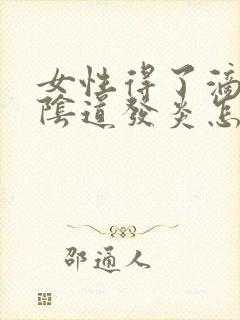 女性得了滴
陰道發炎怎
邵通人